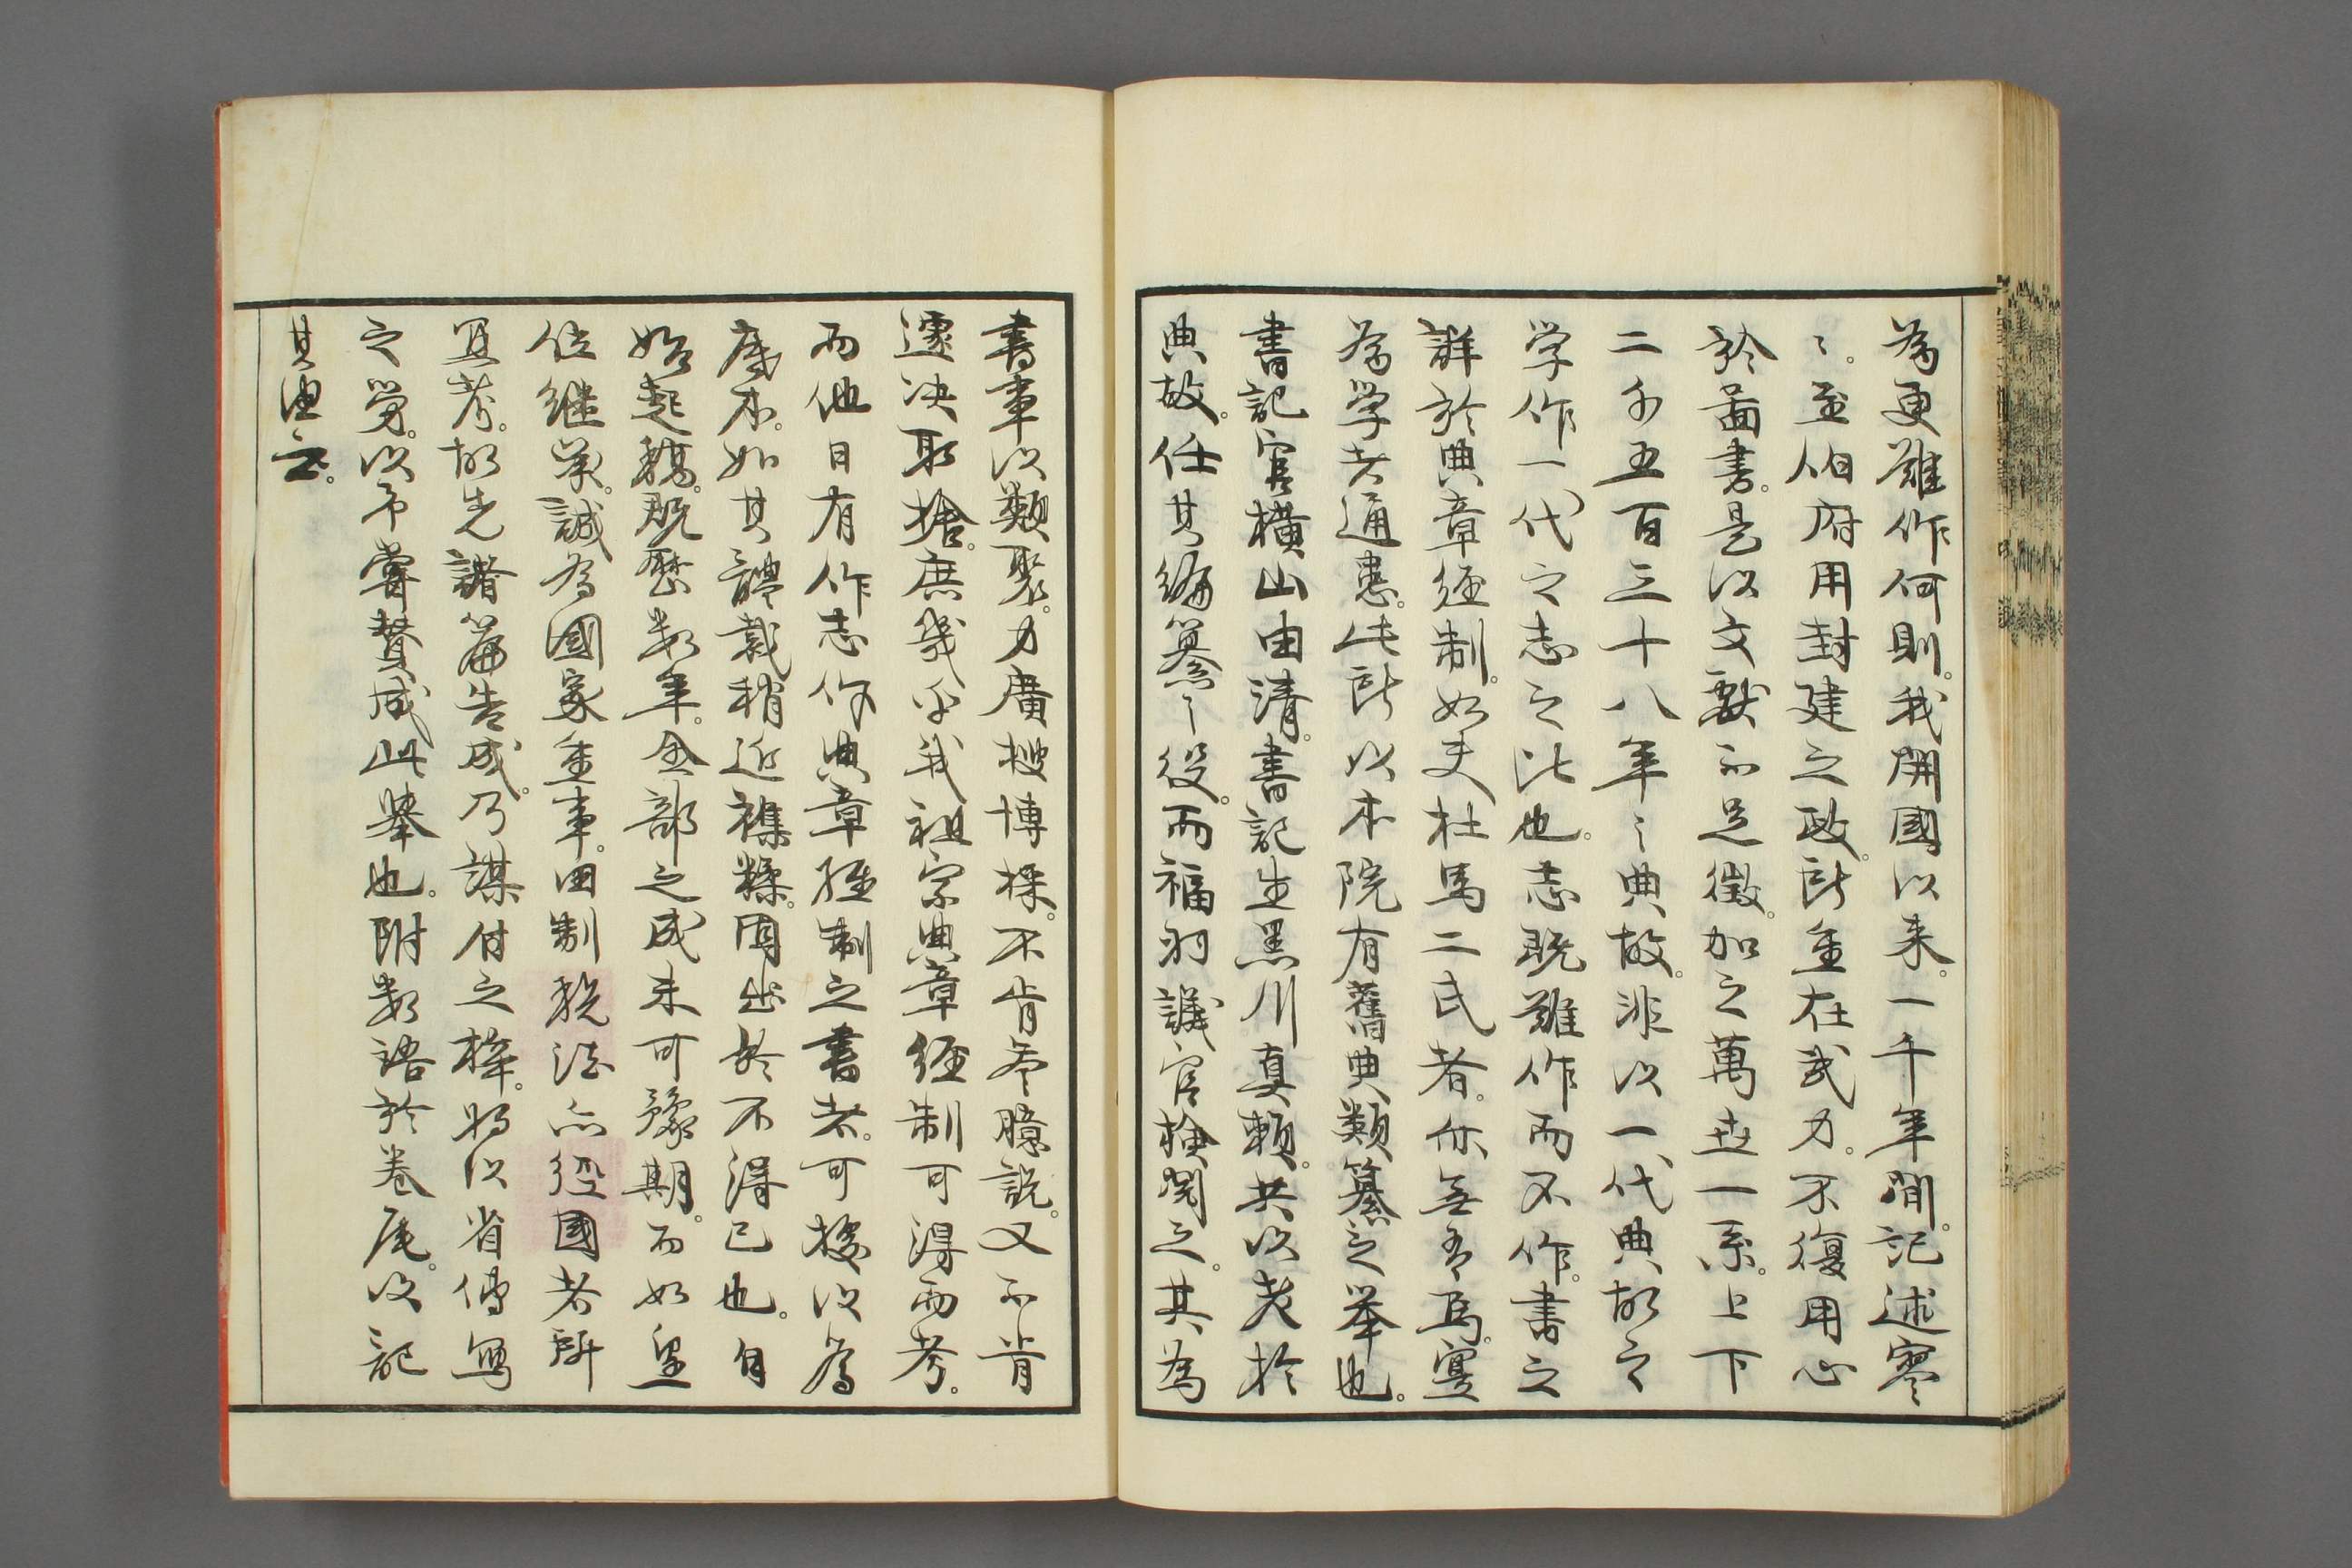 為更難作何則。我開國以來。一千年間。記述寥
〻。至伯府用封建之政。所重在武力。不復用心
於圖書。是以文獻不足徵。加之萬世一系。上下
二千五百三十八年〻典故。非以一代典故之
学作一代之志之比也。志既難作而不作。書之
詳於典章經制。如夫杜馬二氏者。亦無有焉。寔
為学者通患。此所以本院有舊典類纂之举也。
書記官橫山由清。書記生黑川真賴。共以老於
典故。任其編纂〻役。而福羽議官檢閲之。其為
書事以類聚。力廣搜博採。不肯参臆説。又不肯
遽决取捨。庶幾乎我祖宗典章經制可得而考。
而他日有作志作典章經制之書者。可據以為
底本。如其體裁稍近襍糅。固出於不得已也。自
始起稿。既歷數年。全部之成未可豫期。而如皇
位繼承。誠為國家重事。田制税法亦經國者所
宜考。故先諸篇告成。乃謀付之梓。將以省傳寫
之勞。以予嘗贊成此舉也。附數語於卷尾。以記
其由云。